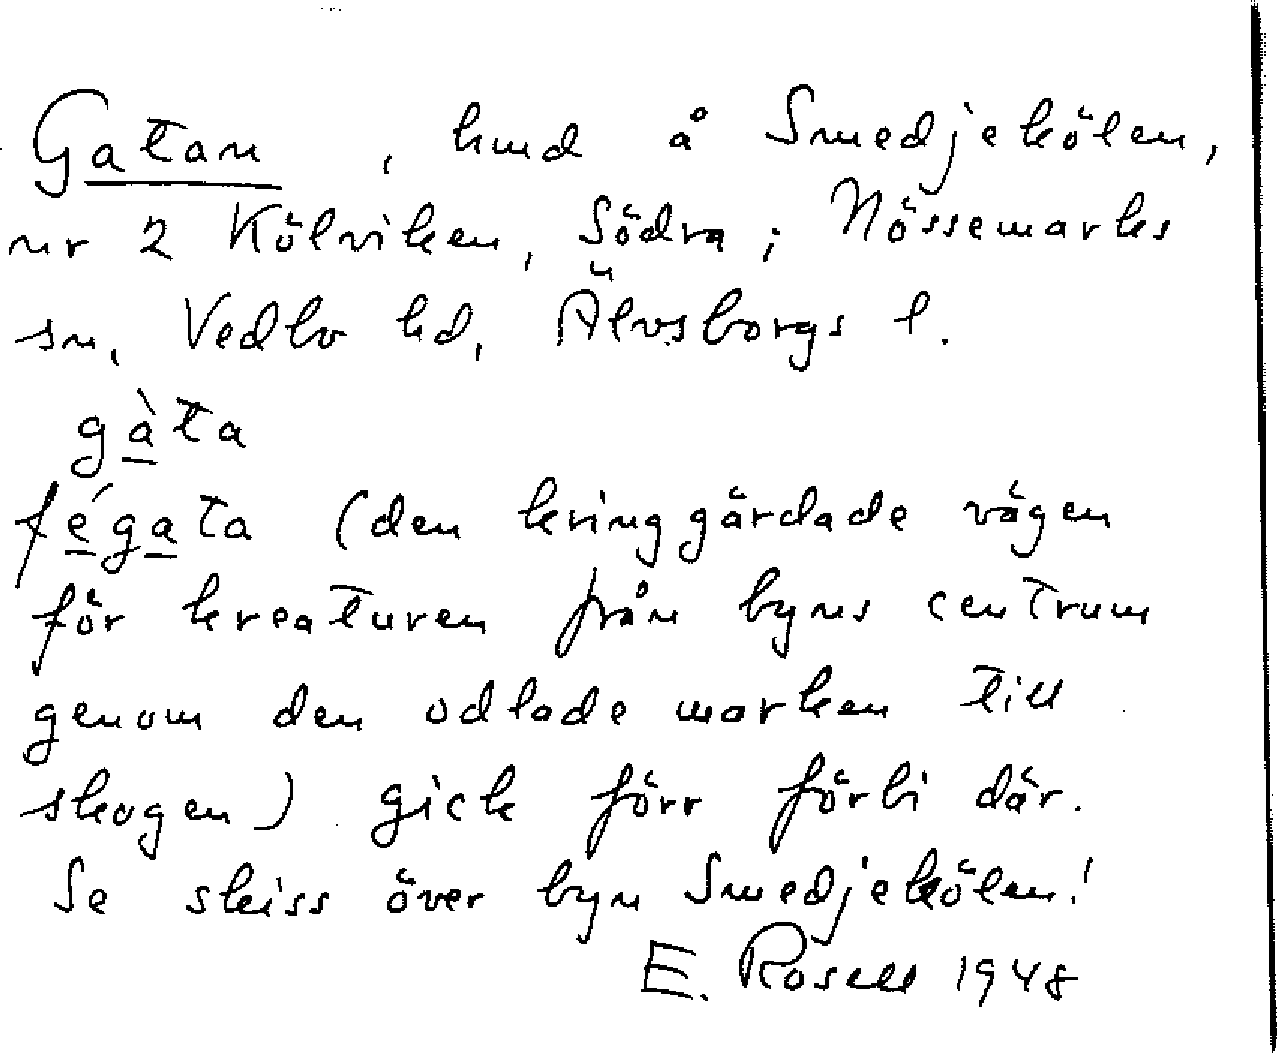 Gatan, hmd å Smedjekölen,
nr 2 Kölviken, Södra; Nössemarks
sn, Vedbo hd, Älvsborgs l.
gàta
fégata (den kringgärdade vägen
för kreaturen från byns centrum
genom den odlade marken till
skogen) gick förr förbi där.
Se skiss över byn Smedjekölen!
E. Rosell 1948